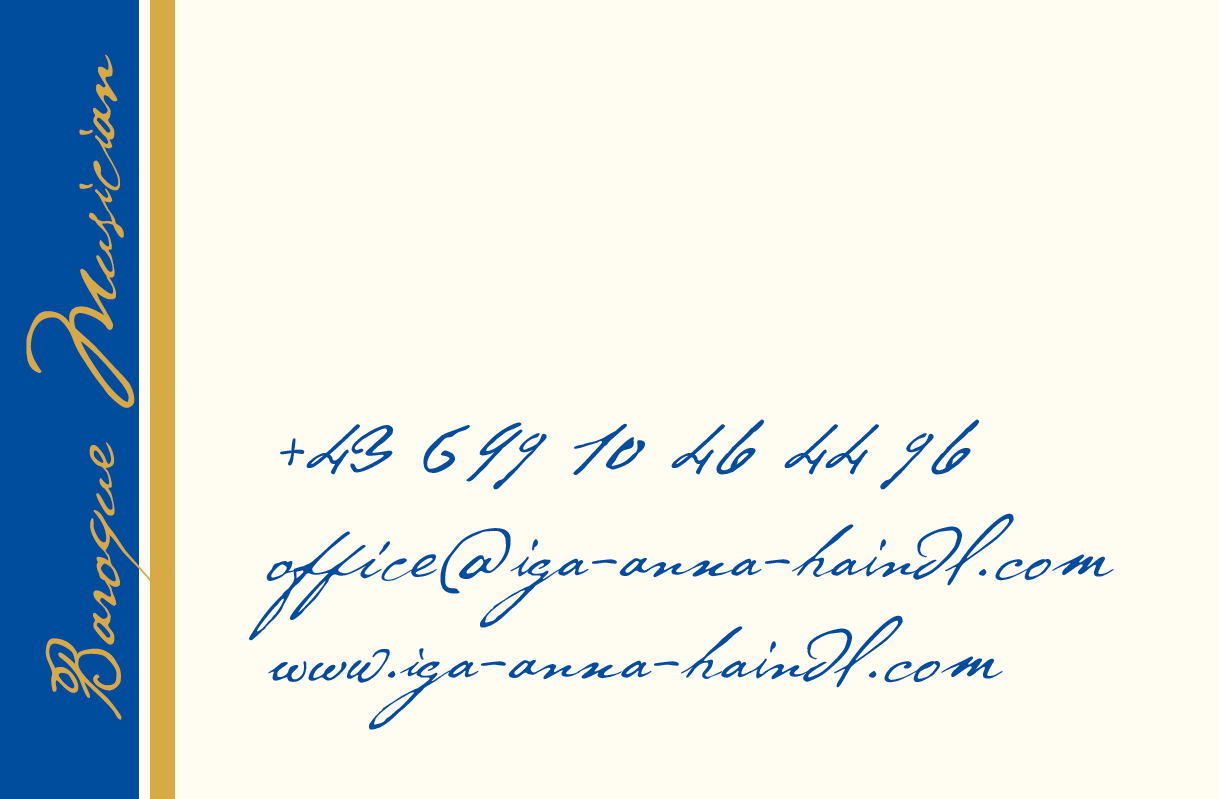 Baroque Musician
+43 699 10 46 44 96
office@iga-anna-haindl.com
www.iga-anna-haindl.com